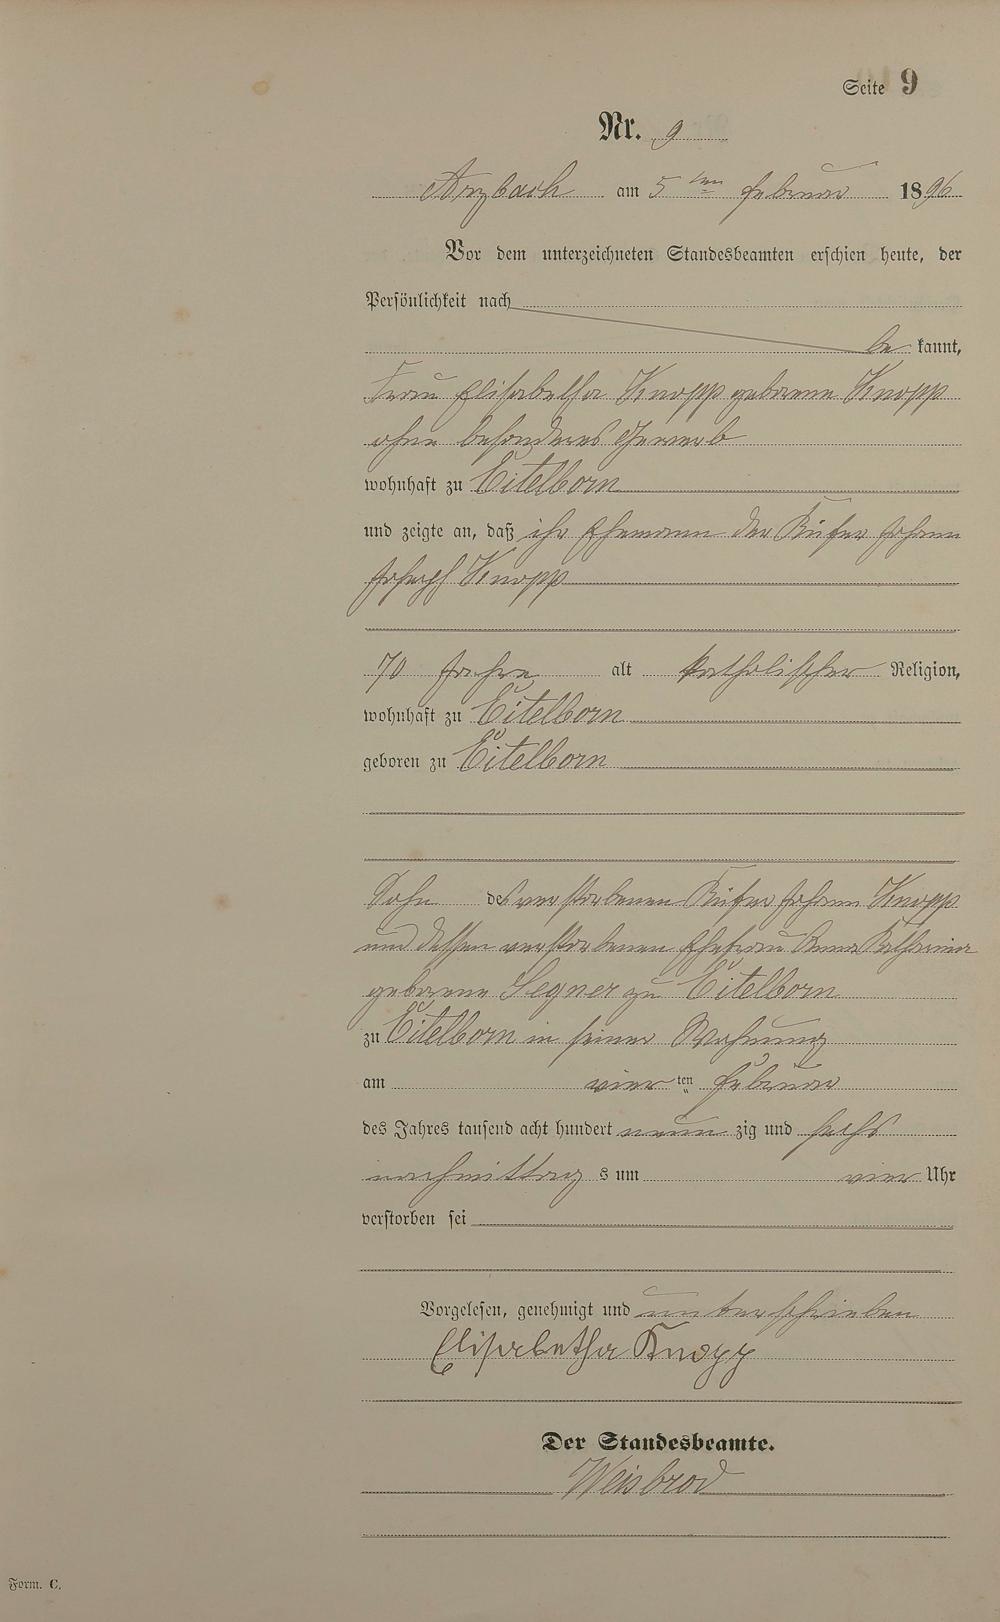 Seite 9
Nr. 9
Arzbach am 5ten Februar 1896
Vor dem unterzeichneten Standesbeamten erschien heute, der
Persönlichkeit nach
be kannt,
Frau Elisabetha Knopp geborene Knopp
ohne besonderes Gewerb
wohnhaft zu Eitelborn
und zeigte an, daß ihr Ehemann der Küfer Johann
Joseph Knopp
70 Jahre alt katholischer Religion,
wohnhaft zu Eitelborn
geboren zu Eitelborn
Sohn des verstorbenen Küfer Johann Knopp
und dessen verstorbenen Ehefrau Anna Katharina
geborene Segner zu Eitelborn
zu Eitelborn in seiner Wohnung
am vier ten Februar
des Jahres tausend acht hundert neun zig und sechs
nachmittag s um vier Uhr
verstorben sei
Vorgelesen, genehmigt und unterschrieben
Elisabetha Knopp
Der Standesbeamte.
Weisbrod
Form. C.